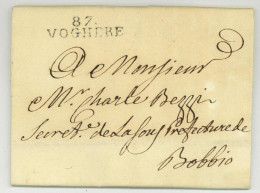 87.
VOGHERE
A Monsieur
Mr. Charle Bezzi
Secret.e de la Sous Préfecture de
Bobbio